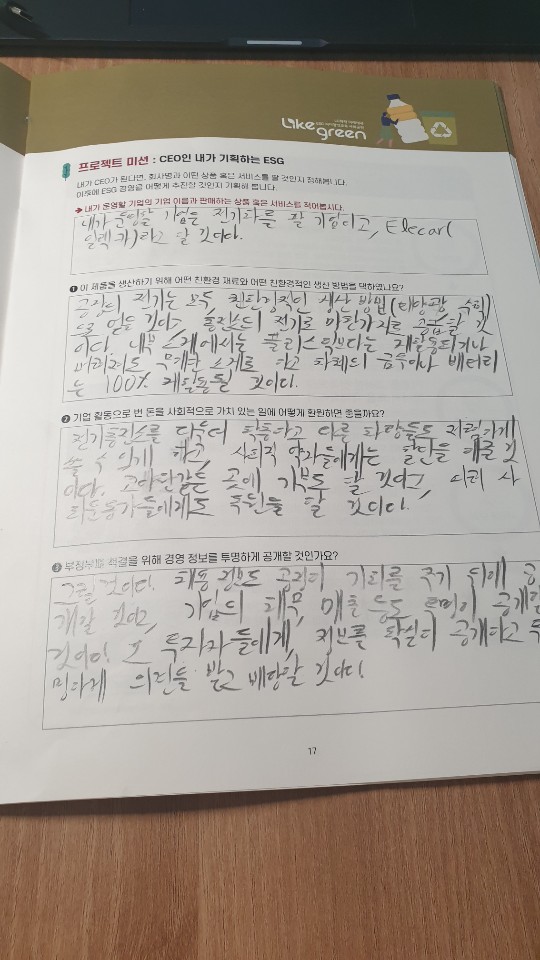 Like green
프로젝트 미션 : CEO인 내가 기획하는 ESG
내가 CEO가 된다면, 회사명과 어떤 상품 혹은 서비스를 할 것인지 정해봅니다.
이듯에 ESG 경영을 어떻게 추진할 것인지 기획해 봅니다.
➔ 내가 운영할 기업의 기업 이름과 판매하는 상품 혹은 서비스를 적어봅시다.
내가 운영할 기업은 전기차를 팔 기업이고, Elecar(
일렉카)라고 할 것이다.
❶ 이 제품을 생산하기 위해 어떤 친환경 재료와 어떤 친환경적인 생산 방법을 택하였나요?
공장의 전기는 모두 친환경적인 생산 방법(태양광, 수력)
으로 얻을 것이고, 충전소의 전기도 마찬가지로 공급할 것
이다. 내부 소재에서는 플라스틱보다는 재활용되거나
버려져도 무해한 소재로 하고 차체의 금속이나 배터리
는 100% 재활용될 것이다.
❷ 기업 활동으로 번 돈을 사회적으로 가치 있는 일에 어떻게 환원하면 좋을까요?
전기충전소를 더욱더 확충하고 다른 차량들도 저렴하게
쓸 수 있게 하고, 사회적 약자들에게는 할인을 해줄 것
이다. 같은 곳에 기부도 할 것이고, 사
회운동가들에게도 후원을 할 것이다.
❸ 부정부패 척결을 위해 경영 정보를 투명하게 공개할 것인가요?
그럴 것이다. 채용 정보도 공정히 기회를 주기 위해 공
개할 것이고, 기업의 재무, 매출 등도 공개할
것이다. 또 투자자들에게, 정보를 확실히 공개하고 투
명하게 의견을 받고 배당할 것이다.
17